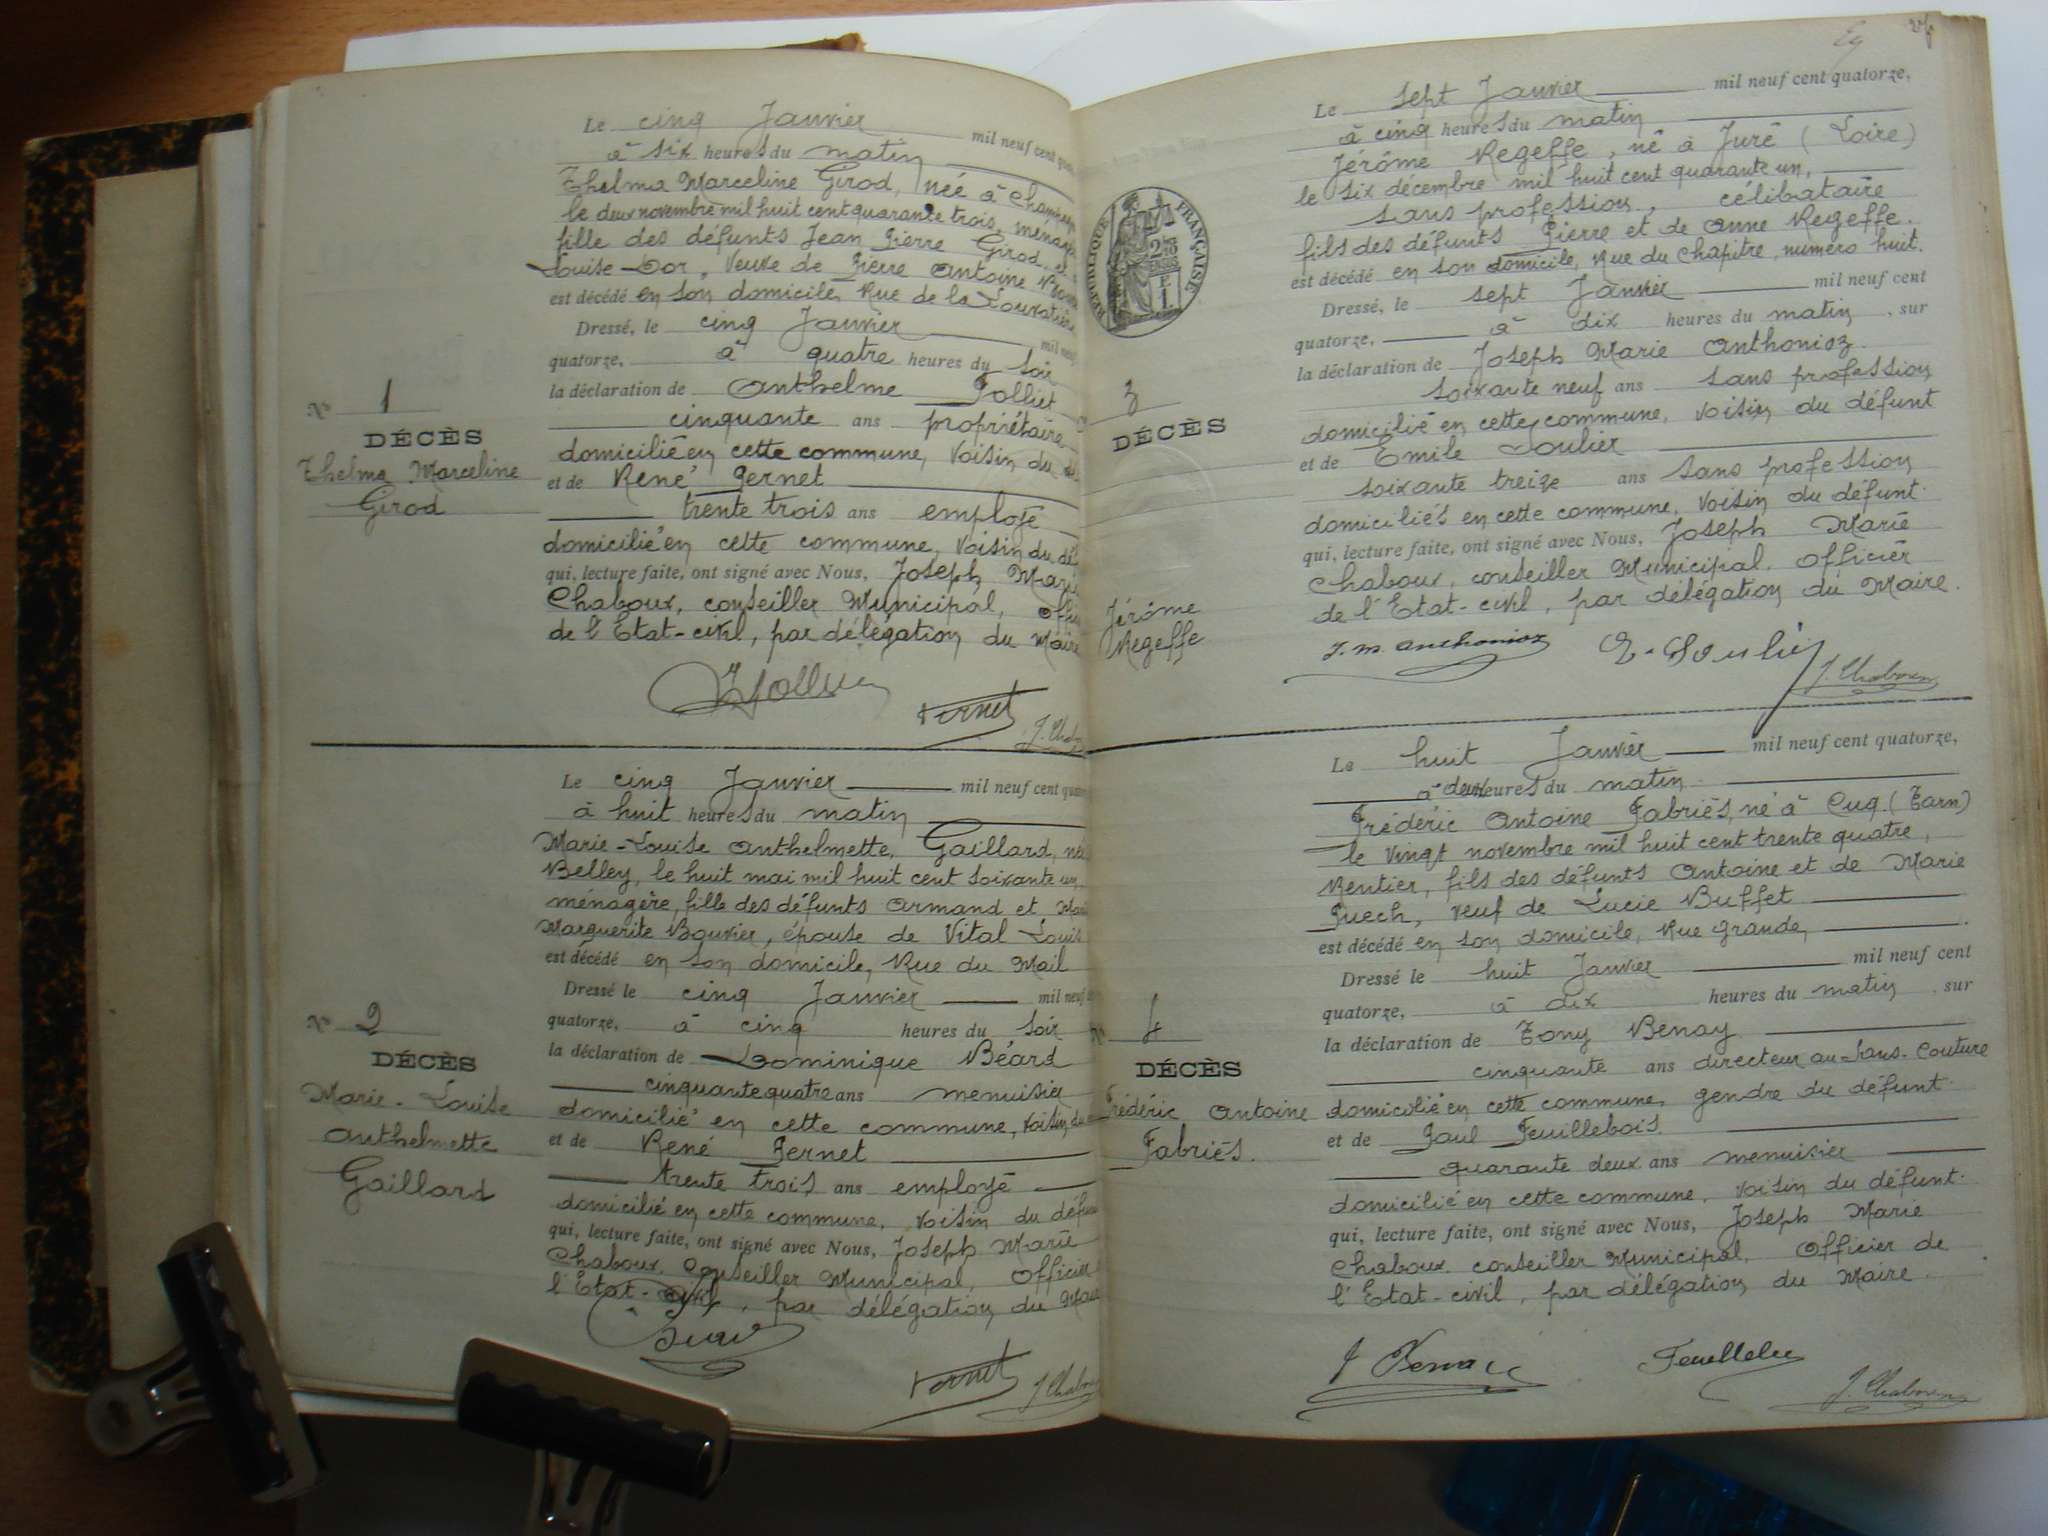 Le cinq Janvier mil neuf cent
à six heures du matin
Thelma Marceline Girod, née à
le deux novembre mil huit cent quarante trois,
fille des défunts Jean Pierre Girod et
Louise Dor, Veuve de Pierre Antoine
est décédé en son domicile, Rue de la
Dressé, le cinq Janvier mil
quatorze, à quatre heures du soir
la déclaration de Anthelme Folliet
cinquante ans propriétaire
domicilié en cette commune, voisin du
et de René Pernet
trente trois ans employé
domicilié en cette commune, voisin du
qui, lecture faite, ont signé avec Nous, Joseph Marie
Chaboux, conseiller Municipal,
de l'Etat-civil, par délégation du Maire
N° 1
DÉCÈS
Thelma Marceline
Girod
Le cinq Janvier mil neuf cent
à huit heures du matin
Marie-Louise Anthelmette Gaillard,
Belley, le huit mai mil huit cent soixante un,
ménagère, fille des défunts Armand et
Marguerite Bouvier, épouse de Vital Louis
est décédé en son domicile, Rue du Mail
Dressé le cinq Janvier mil neuf
quatorze, à cinq heures du soir
la déclaration de Dominique Béard
cinquante quatre ans menuisier
domicilié en cette commune, voisin du
et de René Pernet
trente trois ans employé
domicilié en cette commune, voisin du
qui, lecture faite, ont signé avec Nous, Joseph Marie
Chaboux, conseiller Municipal, Officier
l'Etat-civil, par délégation du
Pernet
J. Chaboux
N° 2
DÉCÈS
Marie-Louise
Anthelmette
Gaillard
Le sept Janvier mil neuf cent quatorze,
à cinq heures du matin
Jérôme Regeffe, né à Juré (Loire)
le six décembre mil huit cent quarante un,
sans profession, célibataire
fils des défunts Pierre et de Anne Regeffe.
est décédé en son domicile, Rue du Chapitre, numéro huit.
Dressé, le sept Janvier mil neuf cent
quatorze, à dix heures du matin, sur
la déclaration de Joseph Marie Anthonioz.
soixante neuf ans sans profession
domicilié en cette commune, voisin du défunt
et de Emile Soulier
soixante treize ans sans profession
domiciliés en cette commune, voisin du défunt.
qui, lecture faite, ont signé avec Nous, Joseph Marie
Chaboux, conseiller Municipal, Officier
de l'Etat-civil, par délégation du Maire.
J. M. Anthonioz
J. Chaboux
RÉPUBLIQUE FRANÇAISE
3
DÉCÈS
Jérôme
Regeffe
Le huit Janvier mil neuf cent quatorze,
à deux heures du matin
Frédéric Antoine Fabriès, né à Cuq (Tarn)
le vingt novembre mil huit cent trente quatre,
Rentier, fils des défunts Antoine et de Marie
Puech, veuf de Lucie Buffet
est décédé en son domicile, Rue Grande,
Dressé le huit Janvier mil neuf cent
quatorze, à dix heures du matin, sur
la déclaration de Tony Benay
cinquante ans directeur au Sans-Couture
domicilié en cette commune, gendre du défunt.
et de Paul Feuillebois
quarante deux ans menuisier
domicilié en cette commune, voisin du défunt.
qui, lecture faite, ont signé avec Nous, Joseph Marie
Chaboux, conseiller Municipal, Officier de
l'Etat-civil, par délégation du Maire.
J. Chaboux
4
DÉCÈS
Frédéric Antoine
Fabriès.